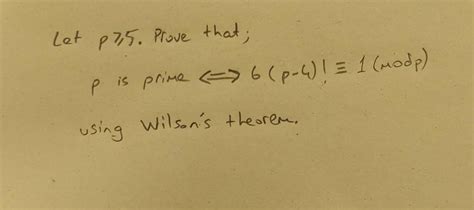 Let p⩾5. Prove that;
p is prime <=> 6(p-4)! ≡ 1 (mod p)
using Wilson's theorem.